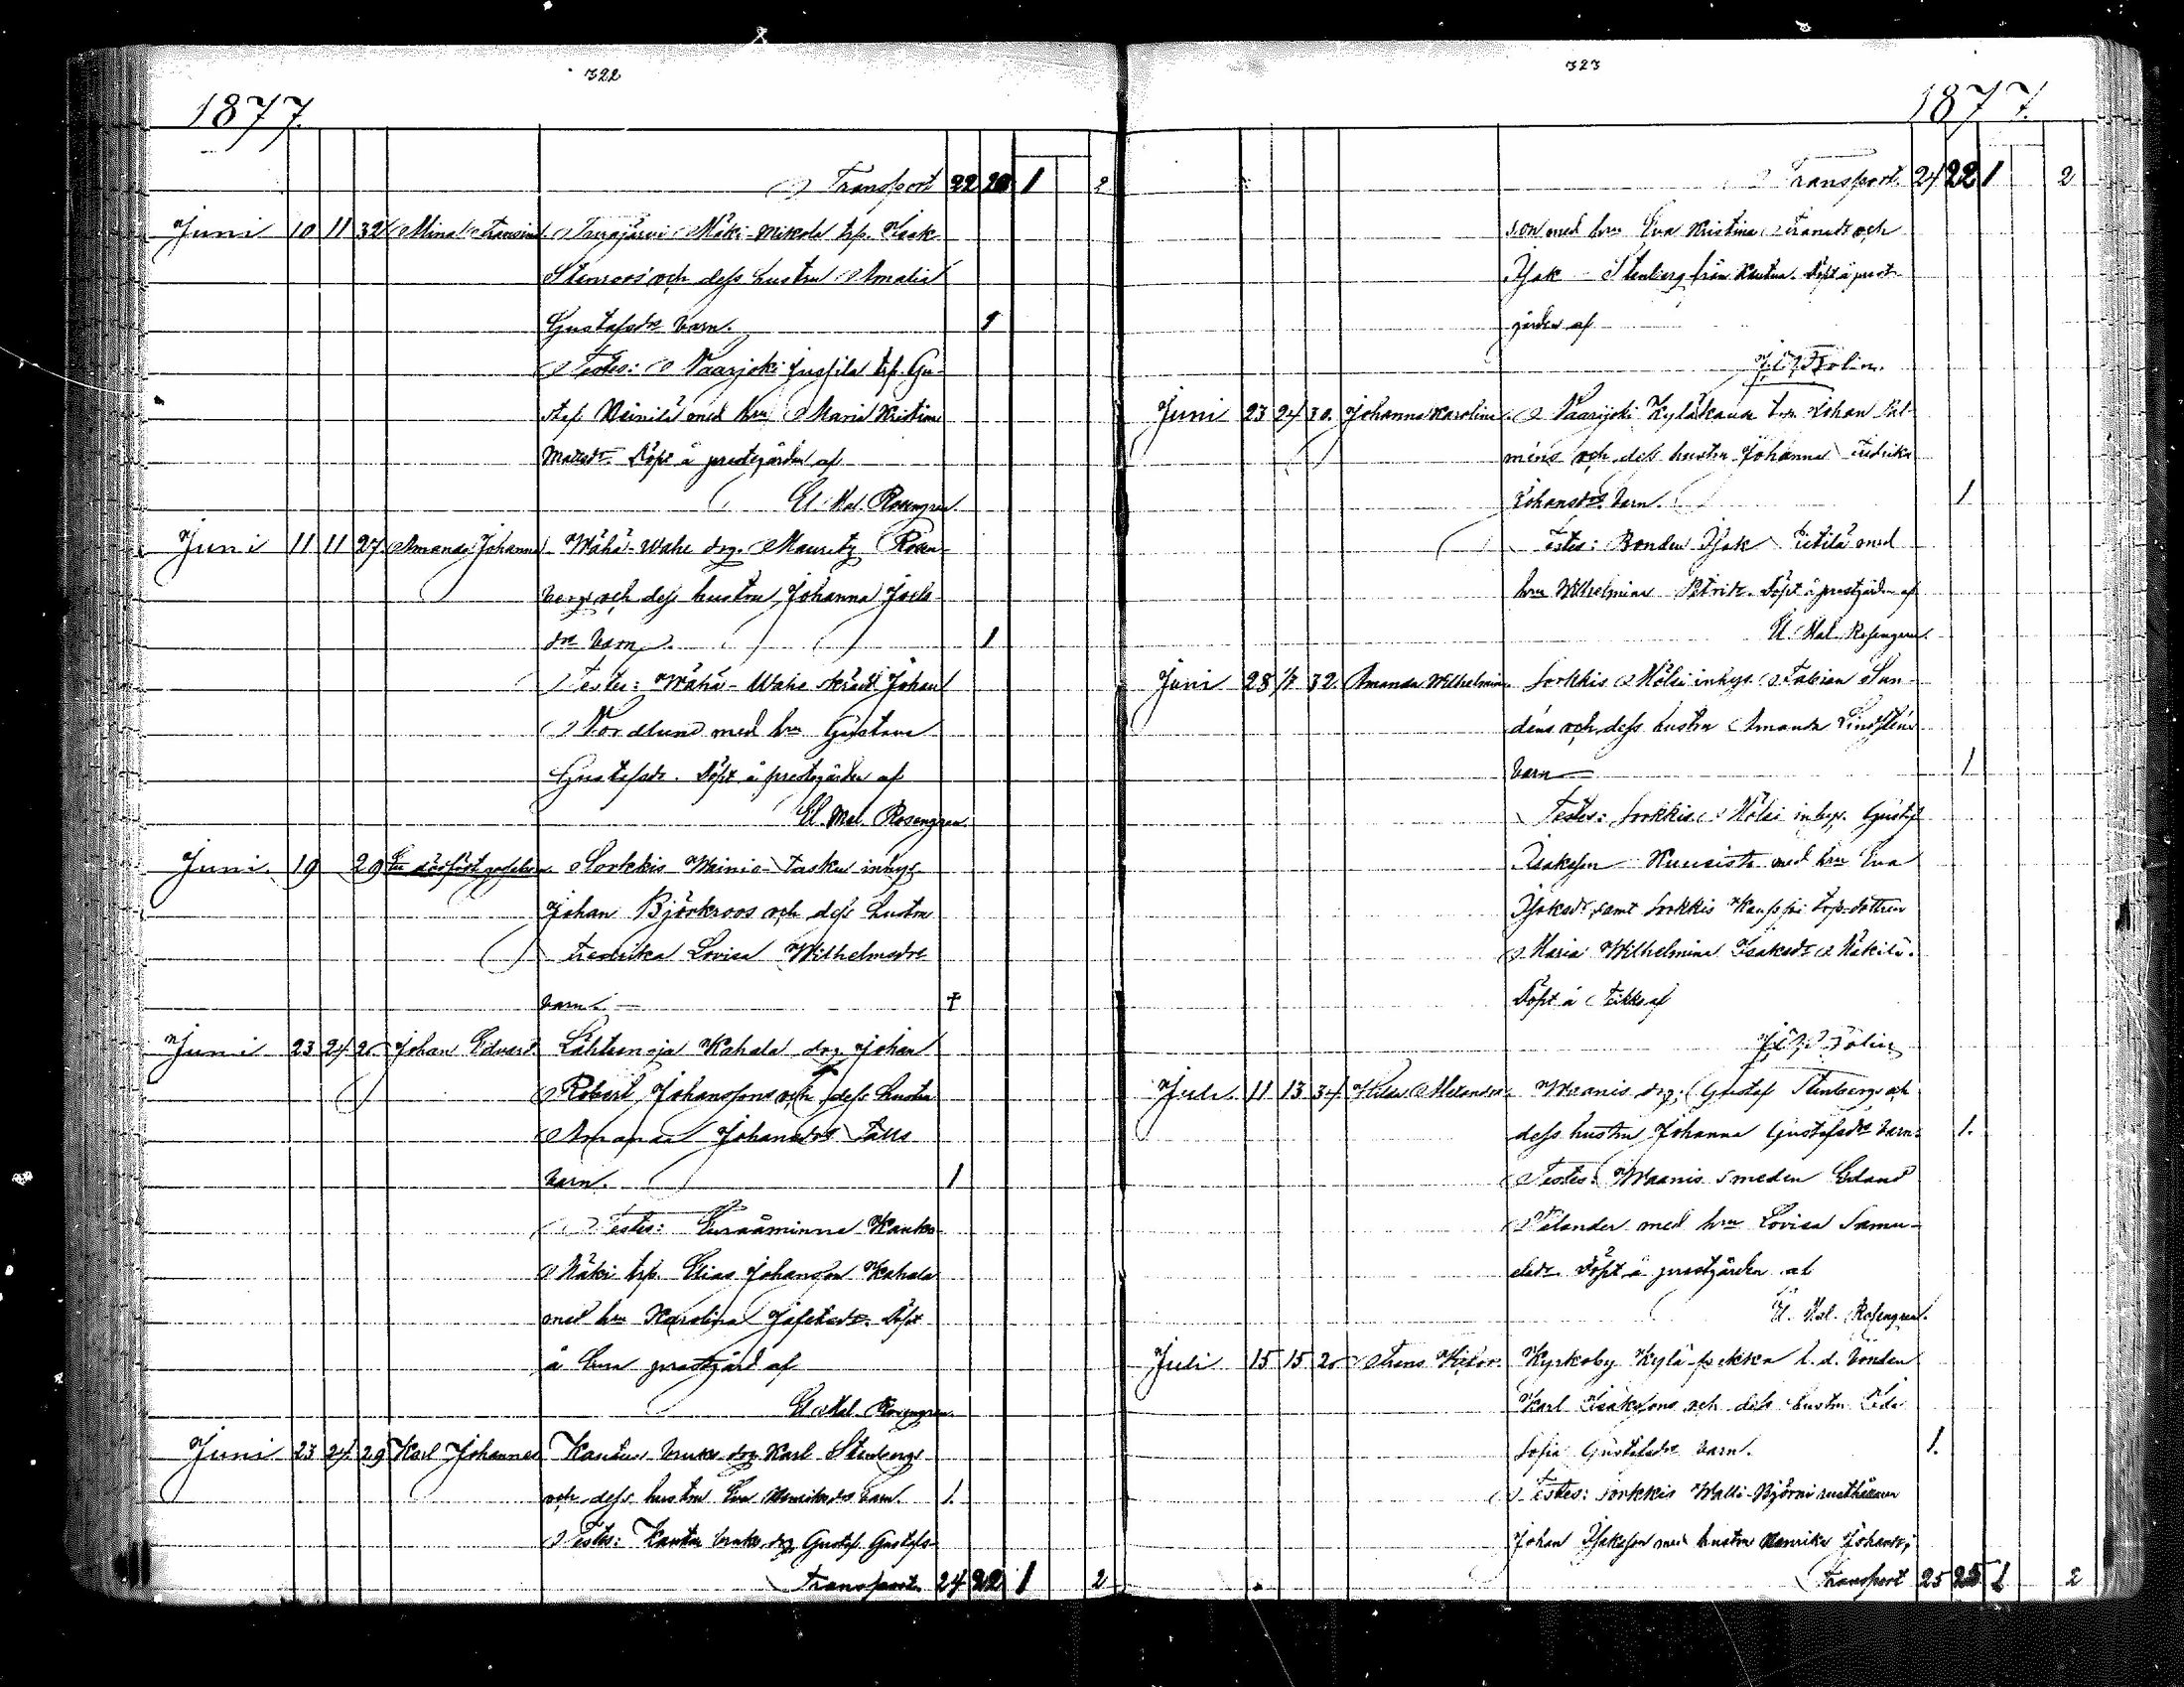 322
1877.
Transport 22 20 1 2
Juni 10 11 32 Mina Fransina Turajärvi Mäki-Mikola trp. Isak
Stenroos och dess hustru Amalia
Gustafsdrs barn. 1
Testes: Naarjoki Jussila trp. Gu-
staf Heinilä med hru Maria Kristina
Matsdr. Döpt å prestegården af
El. Mal. Rosengren.
Juni 11 11 27 Amanda Johanna Wähä-Wahe drg. Mauritz Rosen-
bergs och dess hustru Johanna Joels-
drs barn. 1
Testes: Wähä-Wahe skrädd. Johan
Nordlund med hru Gustava
Gustafsdr. Döpt å prestegården af
El. Mal. Rosengren.
Juni 19 29 Ett dödfödt gossebarn Sorkkis Weinio-Tasku inhys.
Johan Björkroos och dess hustru
Fredrika Lovisa Wilhelmsdrs
barn. †
Juni 23 24 20 Johan Edvard Lähteenoja Kahala drg. Johan
Robert Johanssons och dess hustru
Amanda Johansdrs
barn. 1
Testes: Euraåminne Kauko
Mäki trp. Elias Johansson Kahala
med hru Karolina Jafetsdr. Döpt
å Eura prestgård af
El. Mal. Rosengren.
Juni 23 24 29 Karl Johannes Kauttua bruks drg. Karl Stenbergs
och dess hustru Eva Henriksdrs barn. 1.
Testes: Kauttua bruks drg. Gustaf Gustafs-
Transport 24 22 1 2
323
1877.
Transport. 24 22 1 2
son med hru Eva Kristina Fransdr och
Isak Stenberg från Kauttua. Döpt å prest-
gården af
Juni 23 24 30. Johanna Karolina. Naarijoki Kyläkauna trp. Johan
och dess hustru Johanna Fredrika
Johansdrs barn. 1
Testes: Bonden Isak Pietilä med
hru Wilhelmina. Döpt å prestgården af
El. Mal. Rosengren.
Juni 28 1/7 32. Amanda Wilhelmina. Sorkkis Mölsi inhys. Fabian Sun-
déns och dess hustru Amanda Lindsténs
barn 1
Testes: Sorkkis Mölsi inhys. Gustaf
Isaksson Kuusisto med hru Eva
Isaksdr samt Sorkkis Kauppi trp. dottren
Maria Wilhelmina Isaksdr Mäkilä.
Döpt å af
Juli. 11 13 34. Hilda Alexandra. Waanis drg. Gustaf Stenbergs och
dess hustru Johanna Gustafsdrs barn. 1.
Testes: Waanis smeden Edvard
Palander med hru Lovisa Samu-
elsdr. Döpt å prestgården af
El. Mal. Rosengren.
Juli 15 15 20 Frans Viktor. Kyrkoby Kylä-Pekka l. d. bonden
Karl Isakssons och dess hustru Eda
Sofia Gustafsdrs barn. 1.
Testes: Sorkkis Walli-Björni rusthållaren
Johan Isaksson med hustru Henrika Johansdr,
Transport 25 25 1 2